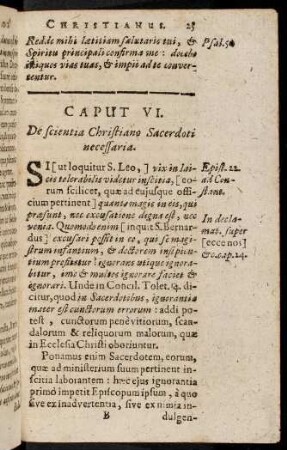 CHRISTIANUS. 25
Redde mihi lætitiam salutaris tui, & Psal. 50
Spiritu principali confirma me : docebo
iniquos vias tuas, & impii ad te conver-
tentur.
CAPUT VI.
De scientia Christiano Sacerdoti
necessaria.
SI [ ut loquitur S. Leo, ] vix in lai- Epist. 22.
cis tolerabilis videtur inscitia, [ eo- ad Con-
rum scilicet, quæ ad cujusque offi- stant.
cium pertinent ] quanto magis in eis, qui
præsunt, nec excusatione digna est, nec In decla-
venia. Quomodo enim [ inquit S. Bernar- mat. super
dus ] excusari possit in eo, qui se magi- [ecce nos]
strum infantium, & doctorem insipien- & c. cap. 14.
tium profitetur ? ignorans utique ignora-
bitur, imo & multos ignorare faciet &
ignorari. Unde in Concil. Tolet. 4. di-
citur, quod in Sacerdotibus, ignorantia
mater est cunctorum errorum : addi po-
test, cunctorum penè vitiorum, scan-
dalorum & reliquorum malorum, quæ
in Ecclesia Christi oboriuntur.
Ponamus enim Sacerdotem, eorum,
quæ ad ministerium suum pertinent in-
scitia laborantem : hæc ejus ignorantia
primò impetit Episcopum ipsum, à quo
sive ex inadvertentia, sive ex nimia in-
B dulgen-